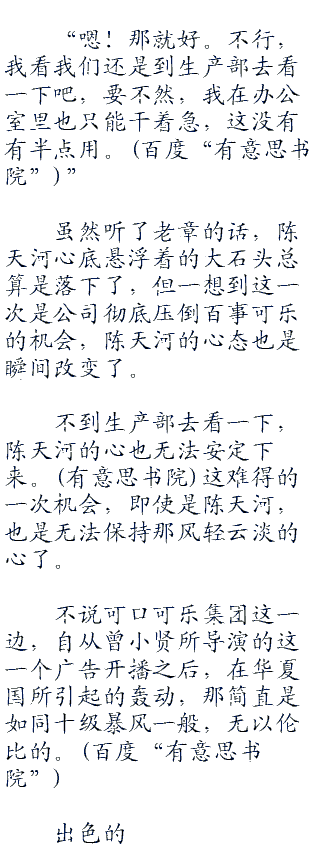 “嗯！那就好。不行，
我看我们还是到生产部去看
一下吧，要不然，我在办公
室里也只能干着急，这没有
有半点用。(百度“有意思书
院”)”
虽然听了老章的话，陈
天河心底悬浮着的大石头总
算是落下了，但一想到这一
次是公司彻底压倒百事可乐
的机会，陈天河的心态也是
瞬间改变了。
不到生产部去看一下，
陈天河的心也无法安定下
来。(有意思书院)这难得的
一次机会，即使是陈天河，
也是无法保持那风轻云淡的
心了。
不说可口可乐集团这一
边，自从曾小贤所导演的这
一个广告开播之后，在华夏
国所引起的轰动，那简直是
如同十级暴风一般，无以伦
比的。(百度“有意思书
院”)
出色的